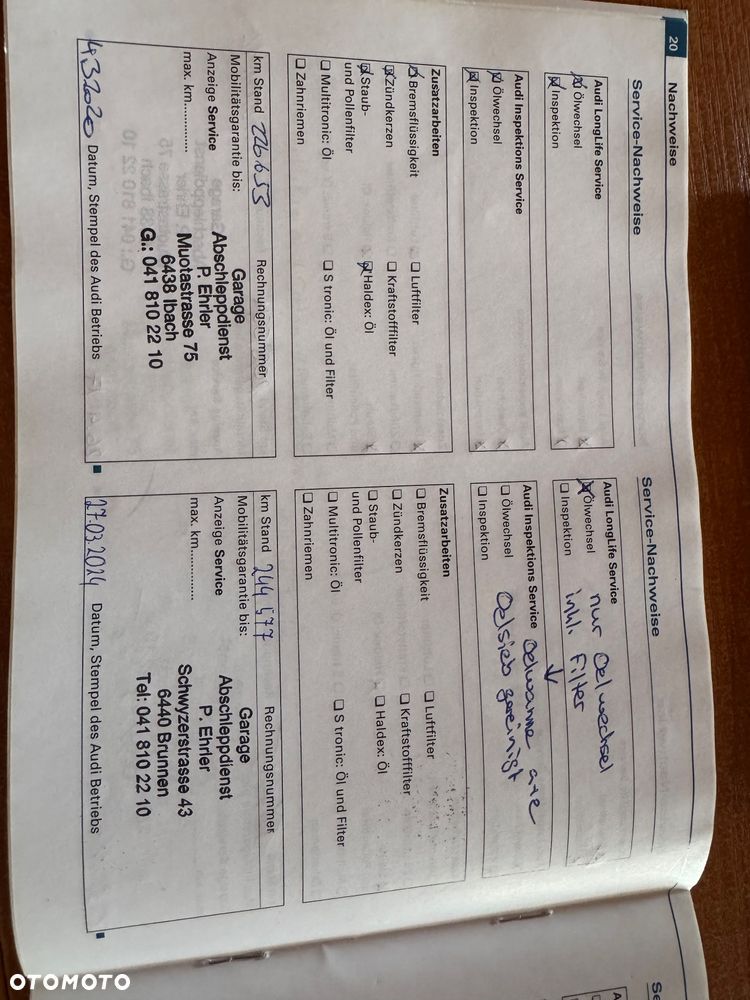 20
Nachweise
Service-Nachweise
Audi LongLife Service
Ölwechsel
Inspektion
Audi Inspektions Service
Ölwechsel
Inspektion
Zusatzarbeiten
Bremsflüssigkeit
Luftfilter
Zündkerzen
Kraftstofffilter
Staub-
und Pollenfilter
Haldex: Öl
Multitronic: Öl
S tronic: Öl und Filter
Zahnriemen
km Stand 226 653
Rechnungsnummer
Mobilitätsgarantie bis:
Anzeige Service
max. km
Garage
Abschleppdienst
P. Ehrler
Muotastrasse 75
6438 Ibach
G.: 041 810 22 10
4 3 2020
Datum, Stempel des Audi Betriebs
Service-Nachweise
Audi LongLife Service
Ölwechsel
Inspektion
nur Oelwechsel
inkl. Filter
Audi Inspektions Service
Ölwechsel
Inspektion
Oelwanne
Oelsieb gereinigt
Zusatzarbeiten
Bremsflüssigkeit
Luftfilter
Zündkerzen
Kraftstofffilter
Staub-
und Pollenfilter
Haldex: Öl
Multitronic: Öl
S tronic: Öl und Filter
Zahnriemen
km Stand 244 577
Rechnungsnummer
Mobilitätsgarantie bis:
Anzeige Service
max. km
Garage
Abschleppdienst
P. Ehrler
Schwyzerstrasse 43
6440 Brunnen
Tel: 041 810 22 10
27.03.2024
Datum, Stempel des Audi Betriebs
OTOMOTO